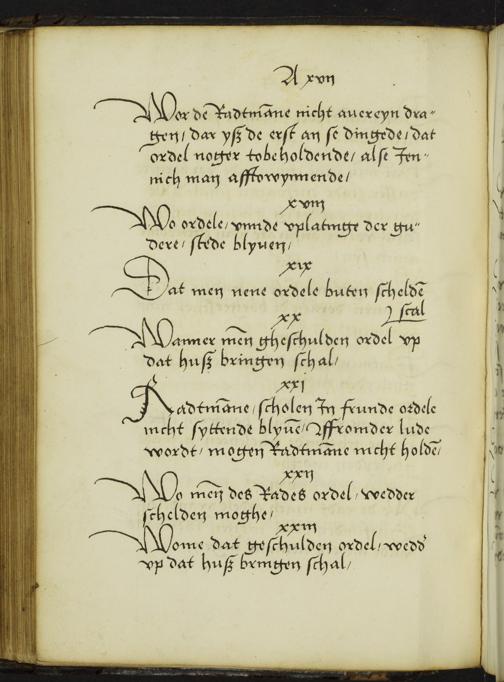 A xvii
Wor de Radtmāne nicht auereyn dra-
gen / dar ysz de erst an se dingede / dat
ordel noger tobeholdende / alse Jen-
nich man afftowynnende /
xviii
Wo ordele / vnnde vplatinge der gu-
dere / stede blyuen /
xix
Dat men nene ordele buten scheldē
scal
xx
Wanner men gheschulden ordel vp
dat husz bringen schal /
xxi
Radtmāne / scholen Jn frunde ordele
nicht syttende blyuē / Vffromder lude
wordt / mogen Radtmāne nicht holdē /
xxii
Wo men des Rades ordel / wedder
schelden moghe /
xxiii
Wome dat geschulden ordel / wedd'
vp dat husz bringen schal /